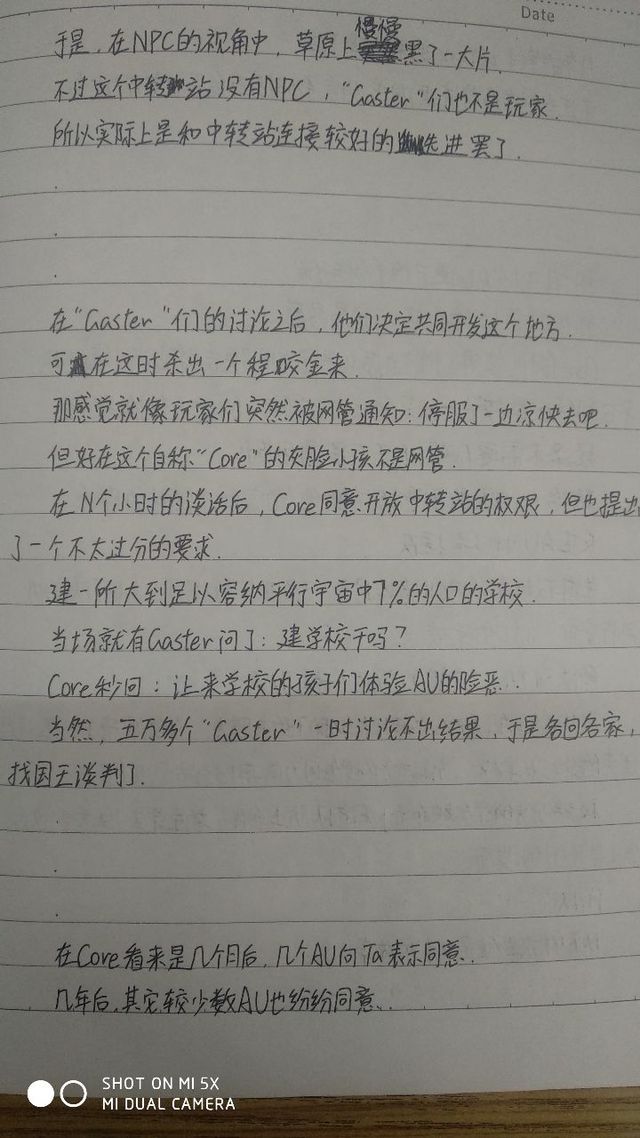 Date
于是,在NPC的视角中,草原上慢慢黑了一大片.
不过这个中转站没有NPC,"Gaster"们也不是玩家.
所以实际上是和中转站连接较好的先进罢了.
在"Gaster"们的讨论之后,他们决定共同开发这个地方.
可在这时杀出一个程咬金来.
那感觉就像玩家们突然被网管通知:停服了一边凉快去吧.
但好在这个自称"Core"的灰脸小孩不是网管.
在N个小时的谈话后,Core同意开放中转站的权限,但也提出
了一个不太过分的要求.
建一所大到足以容纳平行宇宙中7%的人口的学校.
当场就有Gaster问了:建学校干吗?
Core秒回:让来学校的孩子们体验AU的险恶..
当然,五万多个"Gaster"一时讨论不出结果,于是各回各家,
找国王谈判了.
在Core看来是几个月后,几个AU向Ta表示同意..
几年后,其它较少数AU也纷纷同意..
SHOT ON MI 5X
MI DUAL CAMERA